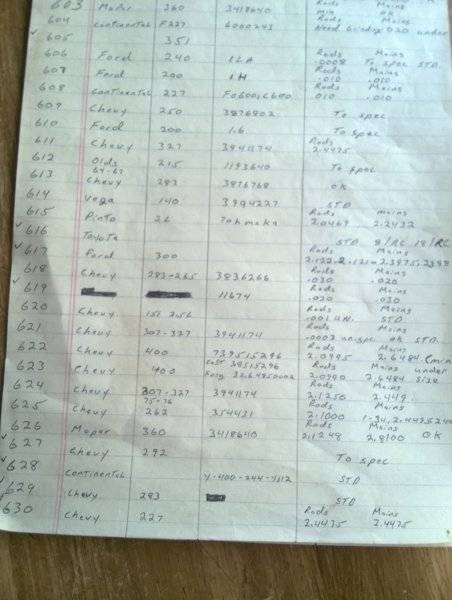 603 Mopar 260 3418640 Rods Mains
min ok
604 Continental F227 6060243 Rods Mains
Need Grinding .020 under
605 351
606 Ford 240 1LA Rods Mains
.0008 To spec STD
607 Ford 200 1H Rods Mains
.010 .010
608 Continental 227 F0600, Rods Mains
.010 .010
609 Chevy 250 3876802 To spec
610 Ford 200 1.6 To spec
611 Chevy 327 3941174 Rods
2.4475
612 Olds 215 1193640 To spec
64-67
613 Chevy 283 3876768 ok
614 Vega 140 3994227 STD
615 Pinto 26 Rods Mains
2.0469 2.2432
616 Toyota STD 8/RC 18/RC
617 Ford 300 Rods Mains
618 Chevy 283-265 3836266 Rods Mains
.030 .020
619 11674 Rods Mains
.020 .030
620 Chevy 151 2.5L Rods Mains
STD
621 Chevy 307-327 3941174 Rods Mains
ok STD
622 Chevy 400 Rods Mains
2.0995 2.6484
623 Chevy 400 Cast 39515296 Rods Mains under
2.0990 2.6484 size
624 Chevy 307-327 3941174 Rods Mains
2.1250 2.449
625 Chevy 262 354431 Rods Mains
75-76 2.1000
626 Mopar 360 3418640 Rods Mains
2.1248 2.8100 OK
627 Chevy 292 To spec
628 Continental Y-400-244-4112 STD
629 Chevy 283 STD
630 Chevy 227 Rods Mains
2.4475 2.4475